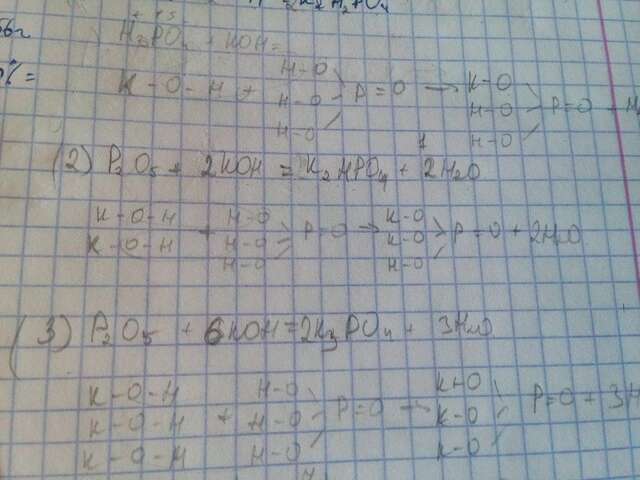 H₃PO₄ + KOH =
K-O-H + H-O H-O H-O P=O → K-O H-O H-O P=O +
(2) P₂O₅ + 2KOH = K₂HPO₄ + 2H₂O
K-O-H K-O-H + H-O H-O H-O P=O → K-O K-O H-O P=O + 2H₂O
(3) P₂O₅ + 6KOH = 2K₃PO₄ + 3H₂O
K-O-H K-O-H K-O-H + H-O H-O H-O P=O → K-O K-O K-O P=O + 3H